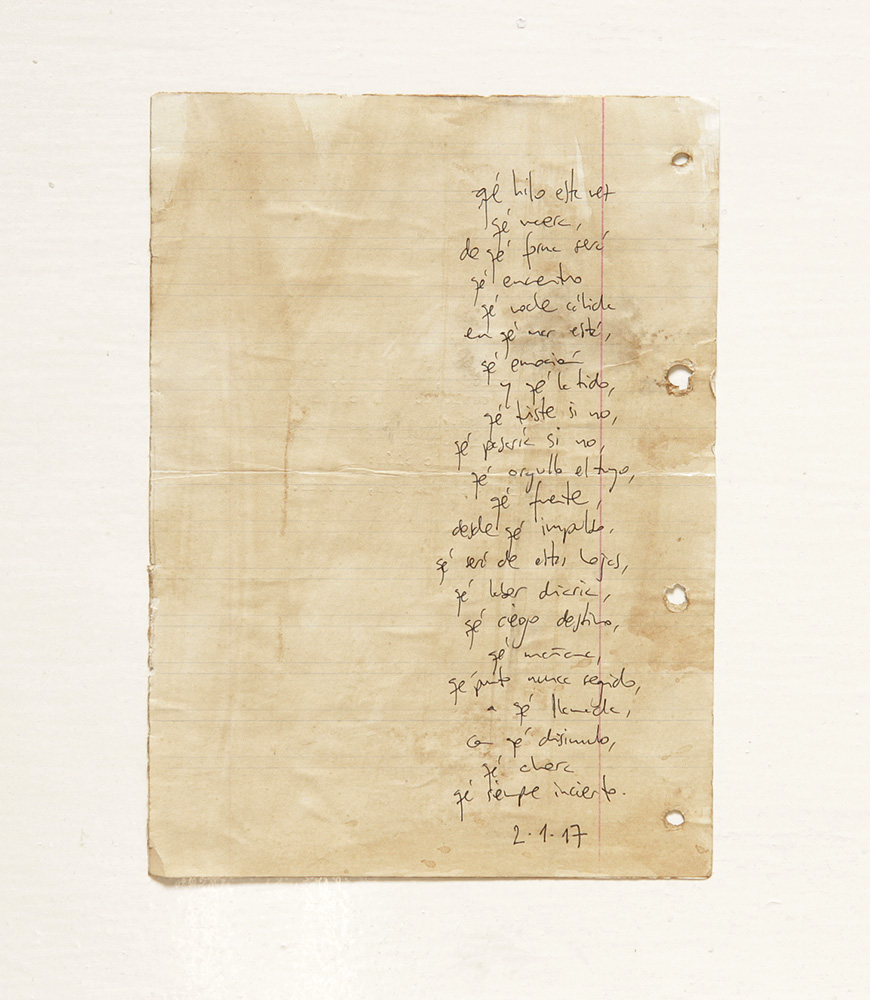 qé hilo esta vez
qé nacerá,
de qé forma será
qé encuentro
qé noche cálida
en qé mar esté,
qé emoción
y qé latido,
qé triste si no,
qé pasaría si no,
qé orgullo el tuyo,
qé fuente,
desde qé impulso,
qé será de estas hojas,
qé labor diaria,
qé ciego destino,
qé mañana,
qé punto nunca seguido,
a qé llamada,
con qé disimulo,
qé ahora
qé siempre incierto.
2·1·17